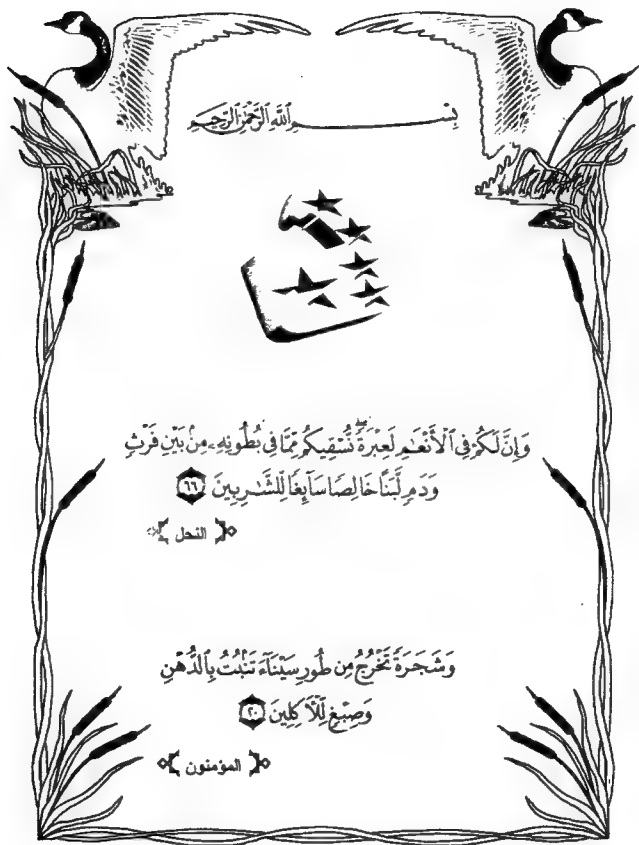 بِسْمِ اللَّهِ الرَّحْمَٰنِ الرَّحِيمِ
وَإِنَّ لَكُمْ فِي الْأَنْعَامِ لَعِبْرَةً ۖ نُّسْقِيكُم مِّمَّا فِي بُطُونِهِ مِن بَيْنِ فَرْثٍ
وَدَمٍ لَّبَنًا خَالِصًا سَآئِغًا لِّلشَّارِبِينَ ٦٦
النحل
وَشَجَرَةً تَخْرُجُ مِن طُورِ سَيْنَآءَ تَنۢبُتُ بِالدُّهْنِ
وَصِبْغٍ لِّلْآكِلِينَ ٢٠
المؤمنون